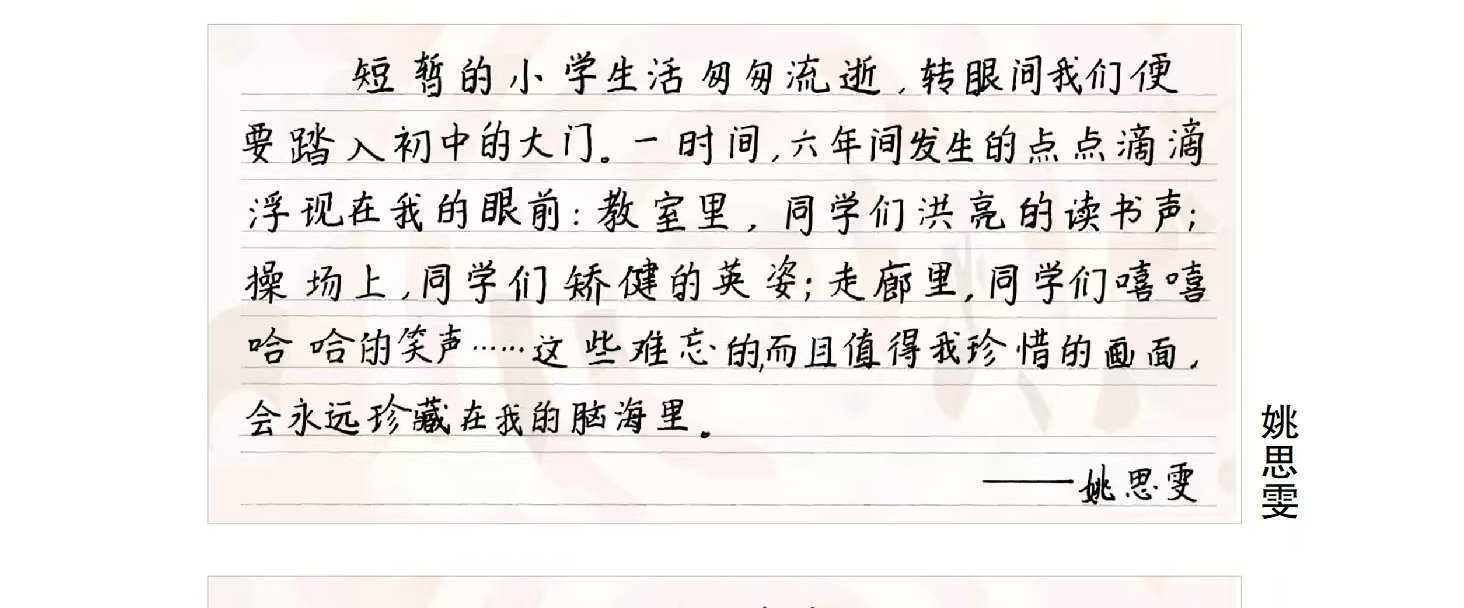 短暂的小学生活匆匆流逝,转眼间我们便
要踏入初中的大门。一时间,六年间发生的点点滴滴
浮现在我的眼前:教室里,同学们洪亮的读书声;
操场上,同学们矫健的英姿;走廊里,同学们嘻嘻
哈哈的笑声……这些难忘的,而且值得我珍惜的画面,
会永远珍藏在我的脑海里。
——姚思雯
姚思雯